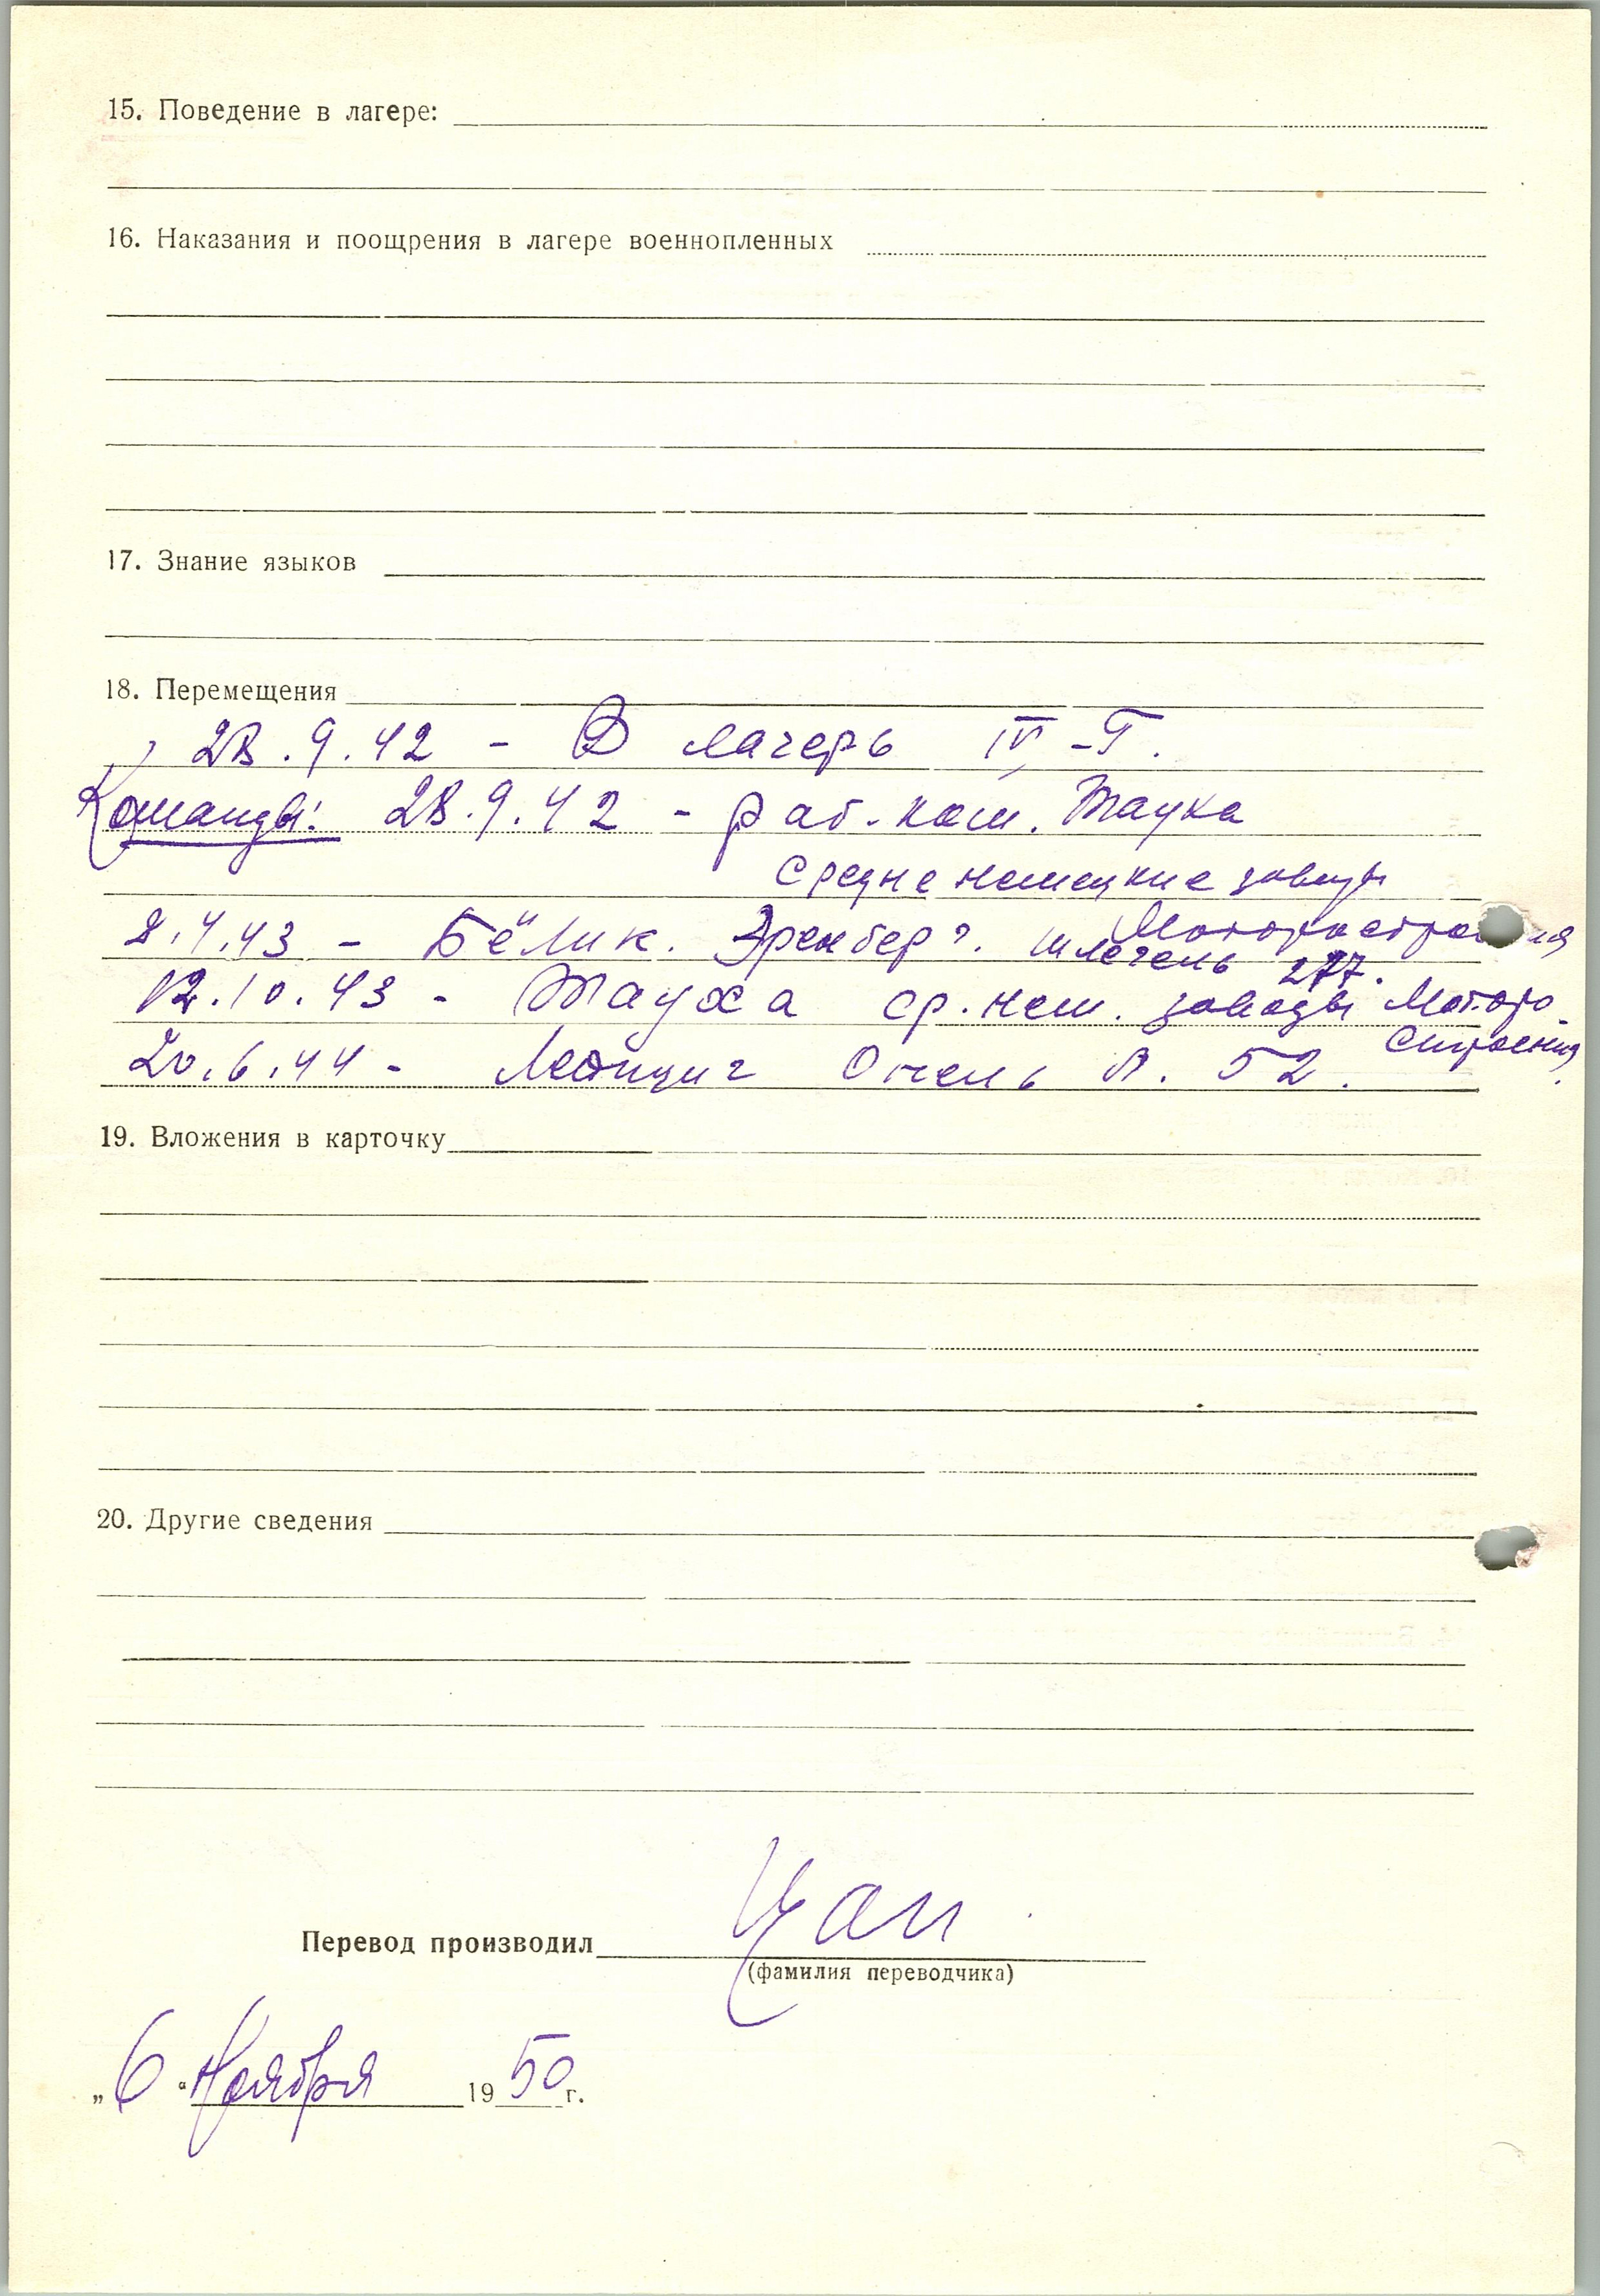 15. Поведение в лагере:
16. Наказания и поощрения в лагере военнопленных
17. Знание языков
18. Перемещения
28.9.42 - В лагерь IV-Г.
Команды: 28.9.42 - раб. ком. Таука
Средне немецкие заводы
Моторостроения
8.4.43 - Бёлик. Эренберг. шлегель 277.
12.10.43 - Тауха ср. нем. заводы Моторо
строения
20.6.44 - Лейпциг Опель А. 52.
19. Вложения в карточку
20. Другие сведения
Перевод производил
(фамилия переводчика)
„6“ Ноября 1950 г.